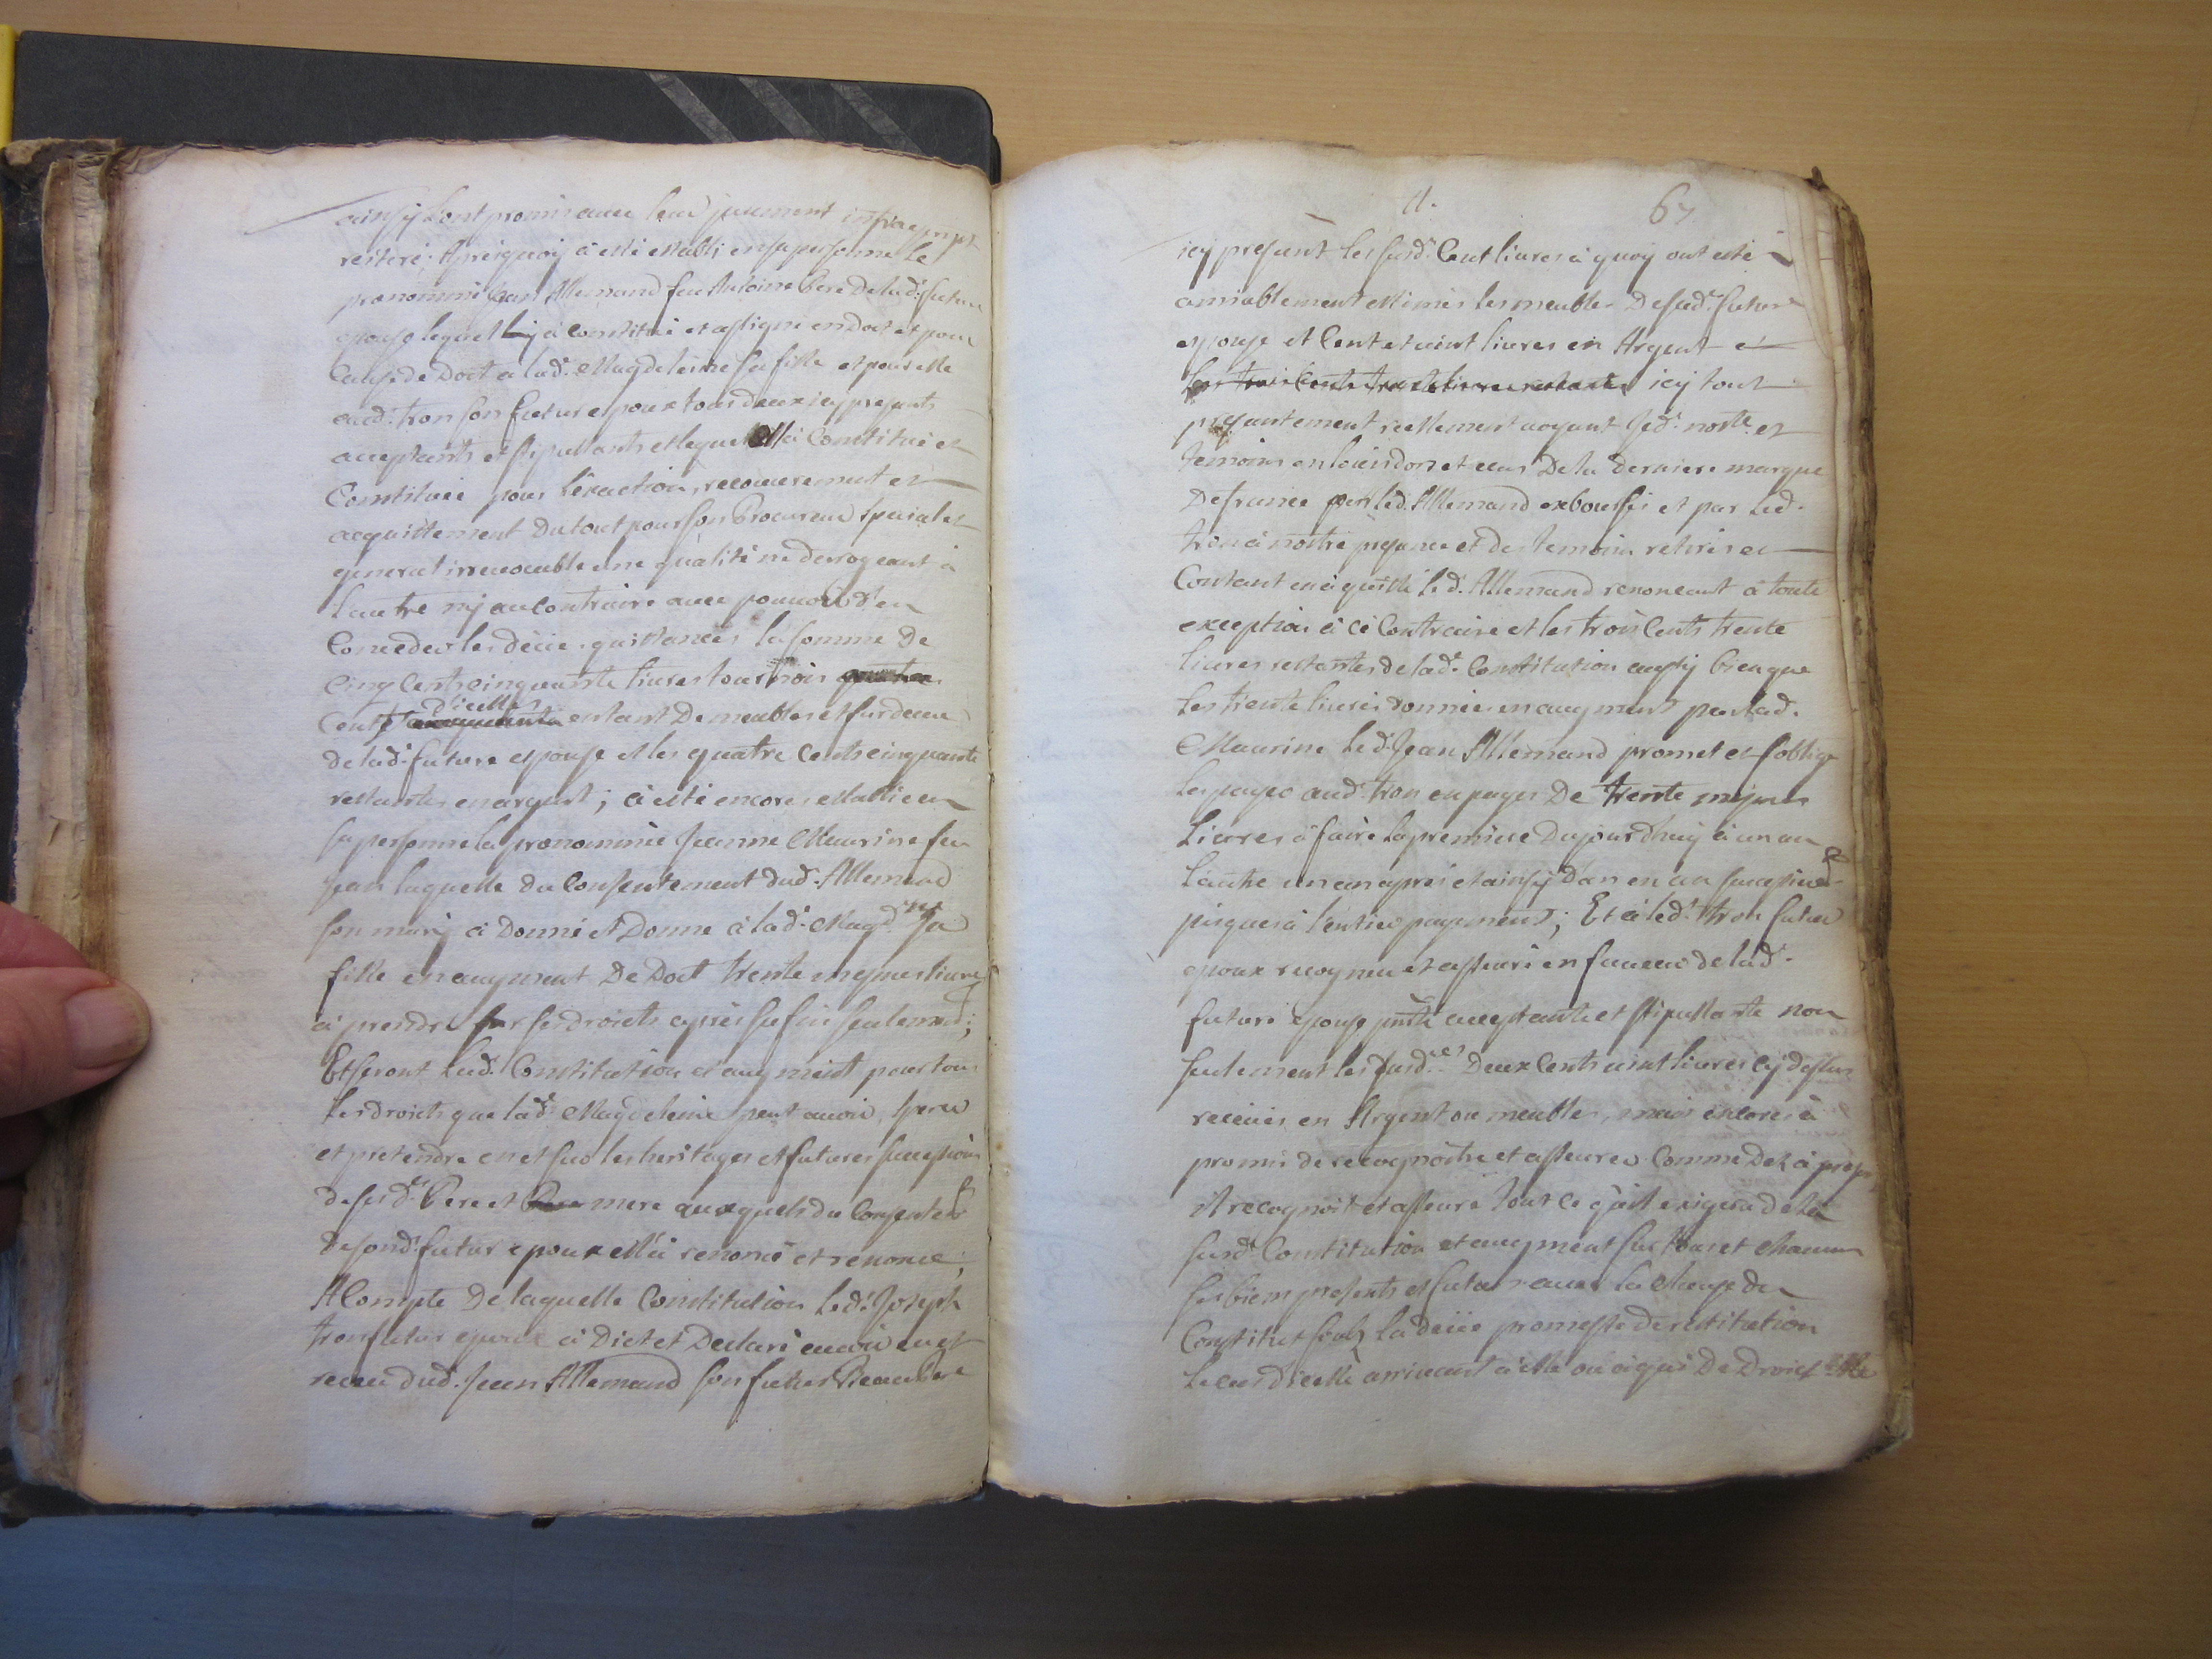 ainsy l'ont promis avec leur jurement
reiteré; Apres quoy à esté establi en sa personne le
pronommé Jean Allemand feu Antoine Pere de lad.e future
epouse lequel à constitué et assigné en dot et pour
Cause de Dot a lad.e Magdeleine sa fille et pour elle
aud.t tron son futur epoux tous deux icy presents
acceptants et stipullants et lequel Elle à Constitué et
Constitue pour l'exaction, recouvrement et
acquittement Du tout pour son Procureur special et
general irrevocable une qualité ne derrogeant à
l'autre ny au contraire avec pouvoir d'en
Conceder les deües quittances la somme de
Cinq Cents cinquante livres tournois
Cent d'icelles estant De meubles et
de lad.e future espouse et les quatre Cents cinquante
restantes en argent; à esté encores establie en
sa personne la pronommée Jeanne Maurine feu
Jean laquelle du Consentement dud. Allemand
son mary à Donné et Donne à lad.e Magd.ne sa
fille en augment De Dot trente livres
à prendre sur ses droicts après sa fin seulement;
Et seront lad. Constitution et augment pour tous
les droicts que lad.e Magdeleine peut avoir, sperer
et pretendre en et sur les heritages et futures successions
de sesd.ts Pere et mere auxquels du Consentem.t
de sond.t futur epoux elle à renoncé et renonce;
A Compte De laquelle Constitution led.t Joseph
tron futur epoux à Dict et Declaré avoir eu et
receu dud. Jean Allemand son futur Beau Pere
11. 67
icy present les susd. Cent livres à quoy ont esté
amiablement estimés les meubles De sad.e future
espouse et Cent et vint livres en Argent et
les trois Cents trente livres restantes icy tout
presentement reellement voyant Jed.t not.re et
temoins en louis d'ors et ecus De la derniere marque
De france par led. Allemand exboursés et par led.
tron à nostre presence et des temoins retirés et
Contant en à quitté led. Allemand renonçant à toute
exception à ce Contraire et les trois Cents trente
livres restantes de lad.e Constitution aussy bien que
les trente livres données en augment par lad.
Maurine led. Jean Allemand promet et s'oblige
les payer aud. tron en payes De trente
livres à faire la premiere Dujourd'huy à un an
l'autre un an apres et ainsy D'an en an
jusques à l'entier payement; Et à led.t tron futur
epoux recogneu et asseuré en faveur de lad.
future epouse pnte acceptante et stipullante non
seulement les susd.es Deux Cents vint livres cy dessus
receües en Argent ou meubles, mais encores à
promis de recognoitre et asseurer Comme Dez à
il recognoit et asseure tout ce qu'il exigera de la
susd.e Constitution et augment sur tous et chacuns
ses biens presents et futurs avec la Clause de
Constitut soubz la deüe promesse de restitution
le cas d'icelle arrivant à elle ou à qui De Droict